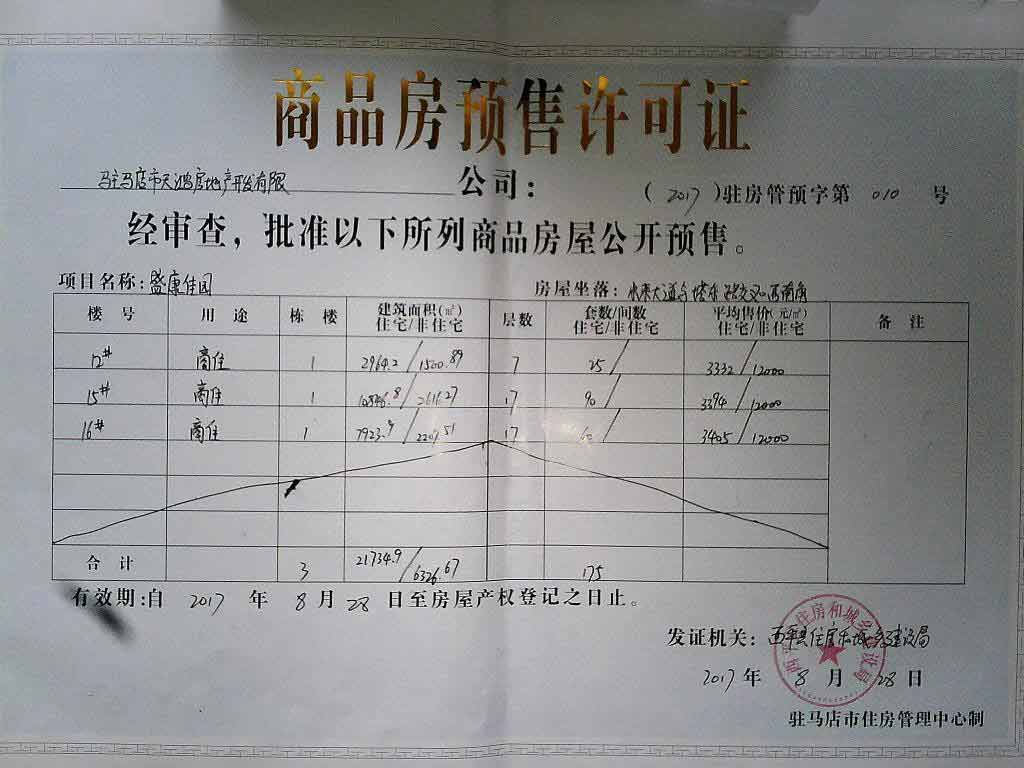 商品房预售许可证
驻马店市天鸿房地产开发有限公司：
（2017）驻房管预字第 010 号
经审查，批准以下所列商品房屋公开预售。
项目名称：盛康佳园 房屋坐落：未来大道与 路交叉口西南角
楼号 用途 栋楼 建筑面积(㎡) 住宅/非住宅 层数 套数/间数 住宅/非住宅 平均售价(元/㎡) 住宅/非住宅 备注
12# 商住 1 2964.2/1500.89 7 25/ 3332/12000
15# 商住 1 10846.8/2616.27 17 90/ 3394/12000
16# 商住 1 7923.9/2209.51 17 60/ 3405/12000
合计 3 21734.9/6326.67 175
有效期：自 2017 年 8 月 28 日至房屋产权登记之日止。
发证机关：西平县住房和城乡建设局
2017 年 8 月 28 日
驻马店市住房管理中心制